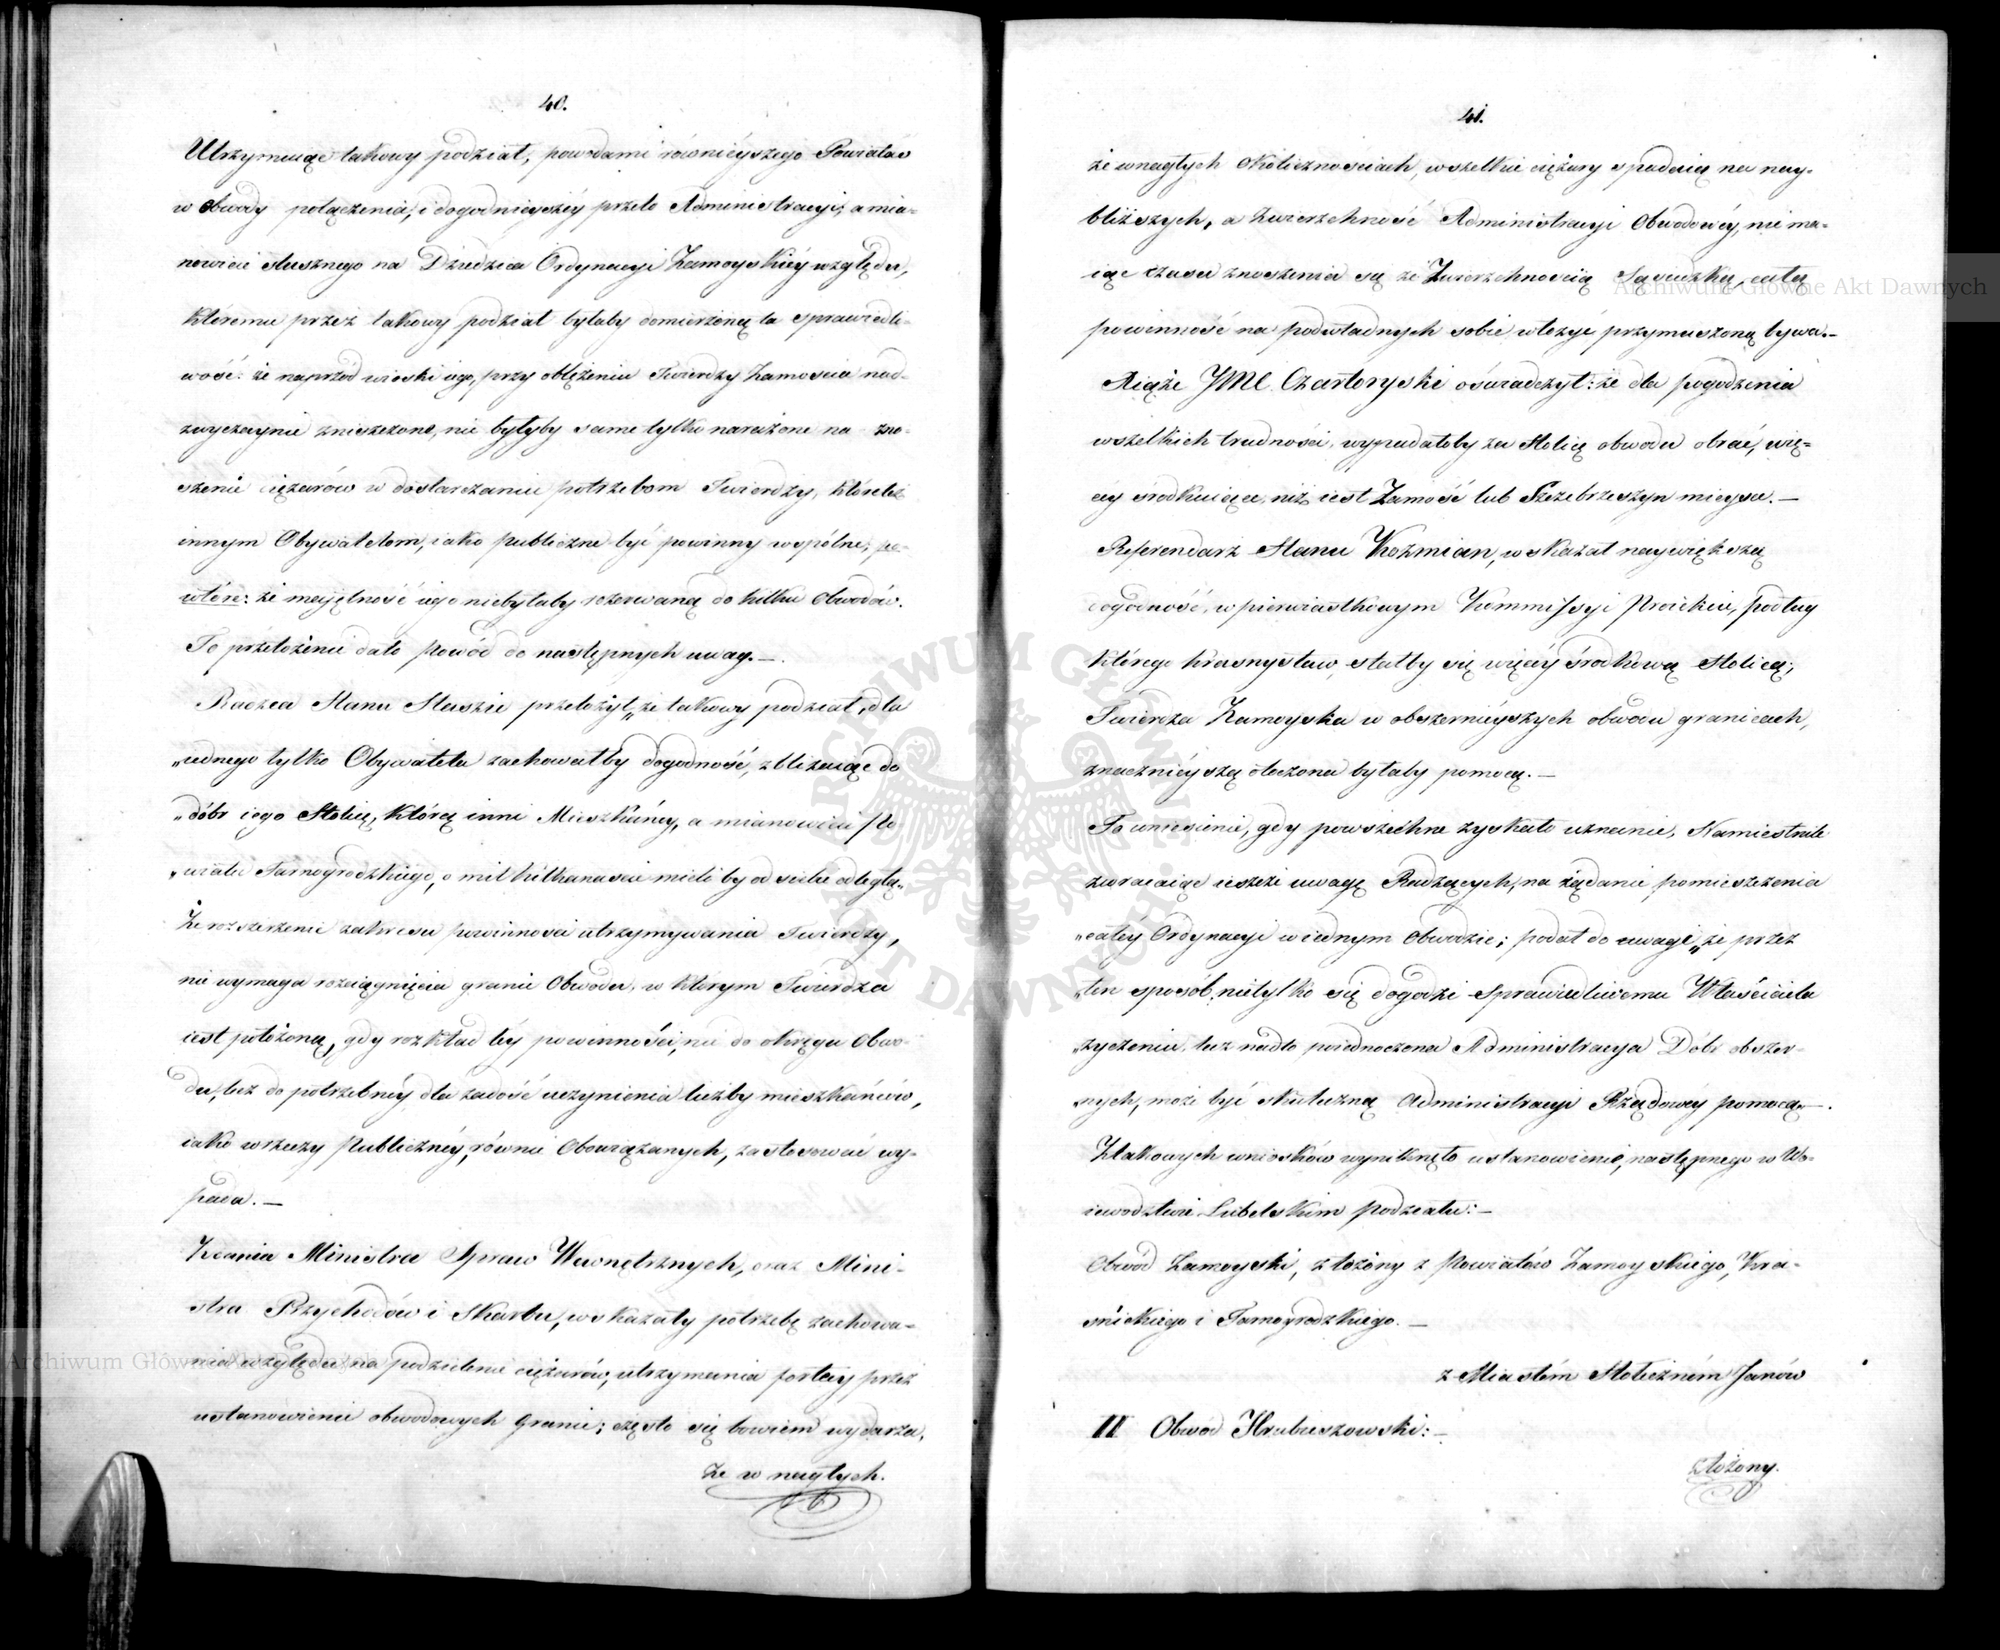 40.
Utrzymuiąc takowy podział, powodami równieyszego Powiatów
w obwody połączenia, i dogodnieyszéy przeto Administracyi; a mia=
nowicie słusznego na Dziedzica Ordynacyi Zamoyskiéy względu,
któremu przez takowy podział byłaby domierzoną ta sprawiedli-
wość: że naprzód wioski iego, przy oblężeniu Twierdzy Zamościa nad-
zwyczaynie zniszczone, nie byłyby same tylko narażone na zno-
szenie ciężarów w dostarczaniu potrzebom Twierdzy, które też
innym Obywatelom, iako publiczne być powinny wspólne; po-
wtóre: że maiętność iego niebyłaby rozerwaną do kilku Obwodów.
To przełożenie dało powód do następnych uwag. —
Radzca Stanu Staszic przełożył, „że takowy podział, dla
„iednego tylko Obywatela zachowałby dogodność, zbliżaiąc do
„dóbr iego Stolicę, którą inni Mieszkańcy, a mianowicie Po-
„wiatu Tarnogrodzkiego, o mil kilkanaście mieliby od siebie odległą„
Że rozszerzenie zakresu powinności utrzymywania Twierdzy,
nie wymaga rozciągnięcia granic Obwodu, w którym Twierdza
iest położoną, gdy rozkład téy powinności, nie do okręgu Obwo-
du, lecz do potrzebnéy dla zadość uczynienia liczby mieszkańców,
iako w rzeczy Publicznéy, równie Obowiązanych, zastosować wy-
pada. —
Zdania Ministra Spraw Wewnętrznych, oraz Mini-
stra Przychodów i Skarbu, wskazały potrzebę zachowa-
nia względu na podzielenie ciężarów, utrzymania fortecy przez
ustanowienie obwodowych granic; często się bowiem wydarza,
że w nagłych.
41.
że w nagłych okolicznościach, wszelkie ciężary spadaią na nay-
bliższych, a Zwierzchność Administracyi Obwodowéy, nie ma=
iąc czasu znoszenia się ze Zwierzchnością Sąsiedzką, całą
powinność na podwładnych sobie włożyć przymuszoną bywa. —
Xiąże JMC. Czartoryski oświadczył: że dla pogodzenia
wszelkich trudności, wypadałoby za Stolicę obwodu obrać, wię=
cy środkuiące, niż iest Zamość lub Szczebrzeszyn mieysce. —
Referendarz Stanu Koźmian, wskazał naywiększą
dogodność, w pierwiastkowym Kommissyi Proiekcie, podług
którego Krasnystaw, stałby się więcéy środkową Stolicą;
Twierdza Zamoyska w obszernieyszych obwodu granicach,
znacznieyszą otoczona byłaby pomocą. —
To wniesienie, gdy powszechne zyskało uznanie, Namiestnik
zwracaiąc ieszcze uwagę Radzących, na żądanie pomieszczenia
„całéy Ordynacyi w iednym Obwodzie; podał do uwagi, „że przez
„ten sposób, nietylko się dogodzi sprawiedliwemu Właściciela
„życzeniu, lecz nadto poiednoczona Administracya Dóbr obszer-
„nych, może być skuteczną Administracyi Rządowéy pomocą„ —.
Z takowych wniosków wyniknęło ustanowienie, następnego w Wo-
iewodztwie Lubelskim podziału: —
Obwód Zamoyski, złożony z Powiatów Zamoyskiego, Kra-
śnickiego i Tarnogrodzkiego. —
z Miastém Stołeczném Janów
II Obwód Hrubieszowski: —
złożony.
Archiwum Główne Akt Dawnych
Archiwum Główne Akt Dawnych
ARCHIWUM GŁÓWNE AKT DAWNYCH